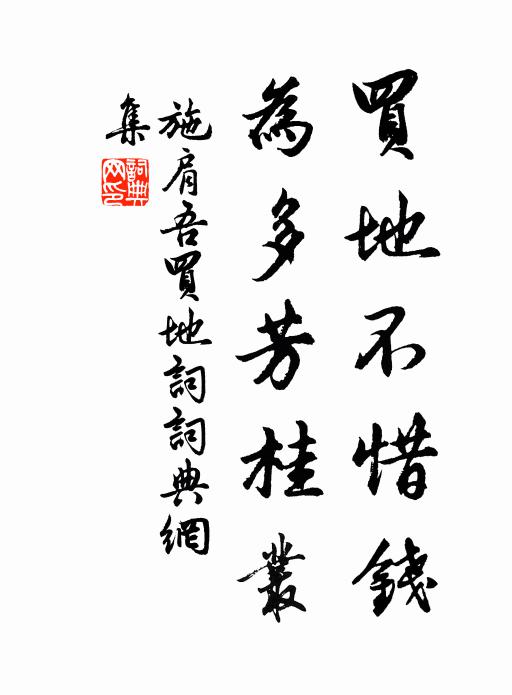 買地不惜錢
為多芳桂叢
施肩吾買地詞詞典網
集
詞典網印